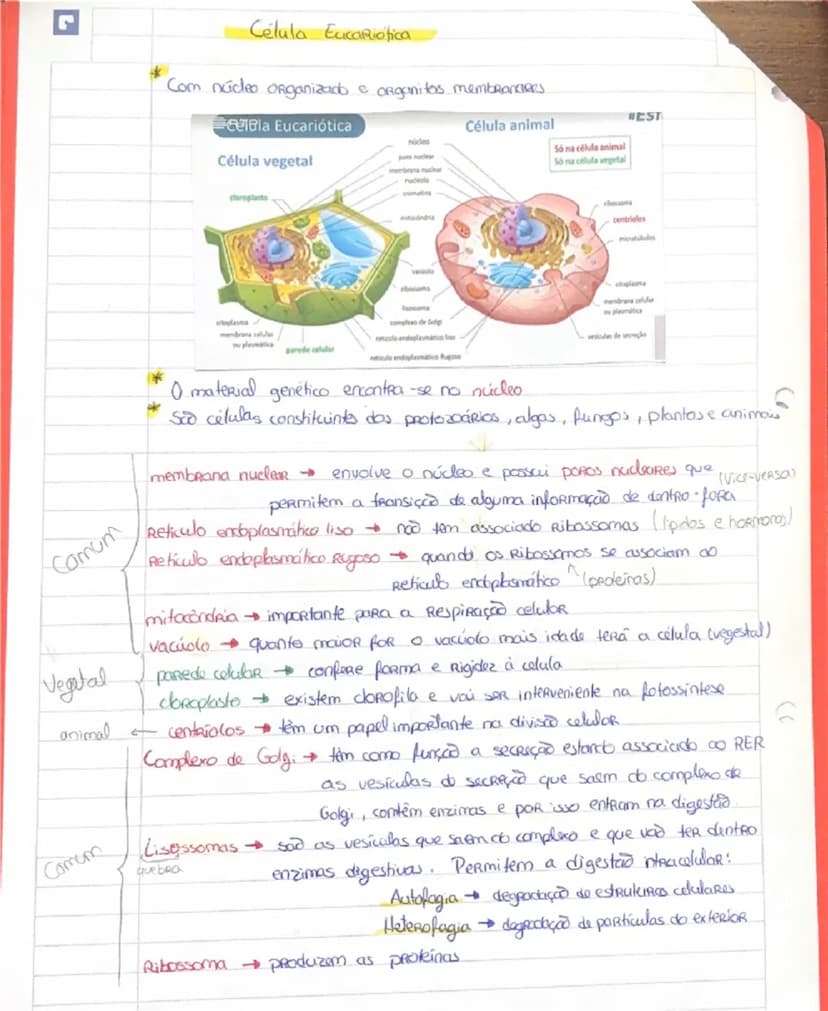 Célula Eucariótica
* Com núcleo organizado e organitos membranares
Célula Eucariótica
Célula animal
#EST
Célula vegetal
Só na célula animal
Só na célula vegetal
núcleo
poro nuclear
membrana nuclear
nucléolo
cromatina
cloroplasto
mitocôndria
ribossoma
centríolos
microtúbulos
vacúolo
ribossoma
lisossoma
citoplasma
membrana celular
ou plasmática
citoplasma
membrana celular
ou plasmática
parede celular
complexo de Golgi
retículo endoplasmático liso
retículo endoplasmático Rugoso
vesículas de secreção
* O material genético encontra-se no núcleo
* São células constituintes dos protozoários, algas, fungos, plantas e animais
membrana nuclear → envolve o núcleo e possui poros nucleares que
permitem a transição de alguma informação de dentro-fora (vice-versa)
Comum
Retículo endoplasmático liso → não tem associado Ribossomas (lípidos e hormona)
Retículo endoplasmático Rugoso → quando os Ribossomas se associam ao
Retículo endoplasmático ^ (proteínas)
mitocôndria → importante para a Respiração celular
vacúolo → quanto maior for o vacúolo mais idade terá a célula (vegestal)
Vegetal
parede celular → confere forma e Rigidez à celula
cloroplasto → existem clorofila e vai ser interveniente na fotossíntese
animal ← centríolos → têm um papel importante na divisão celular
Complexo de Golgi → têm como função a secreção estando associado ao RER
as vesículas de secreção que saem do complexo de
Golgi, contêm enzimas e por isso entram na digestão
Comum
Lisossomas → são as vesículas que saem do complexo e que vão ter dentro
quebra
enzimas digestivas. Permitem a digestão ntracelular:
Autofagia → degradação de estruturas celulares
Heterofagia → degradação de partículas do exterior
Ribossoma → produzem as proteínas